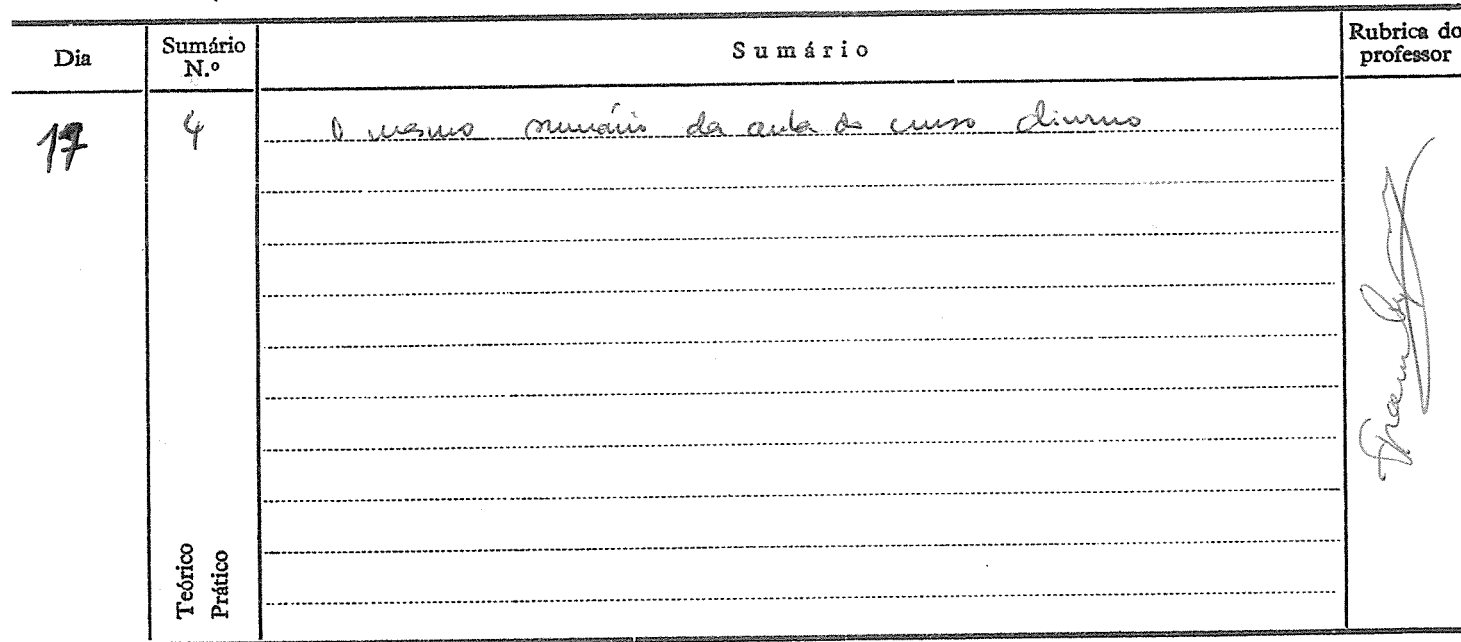 Dia
Sumário N.º
Sumário
Rubrica do professor
17
4
O mesmo sumário da aula do curso diurno
Teórico
Prático